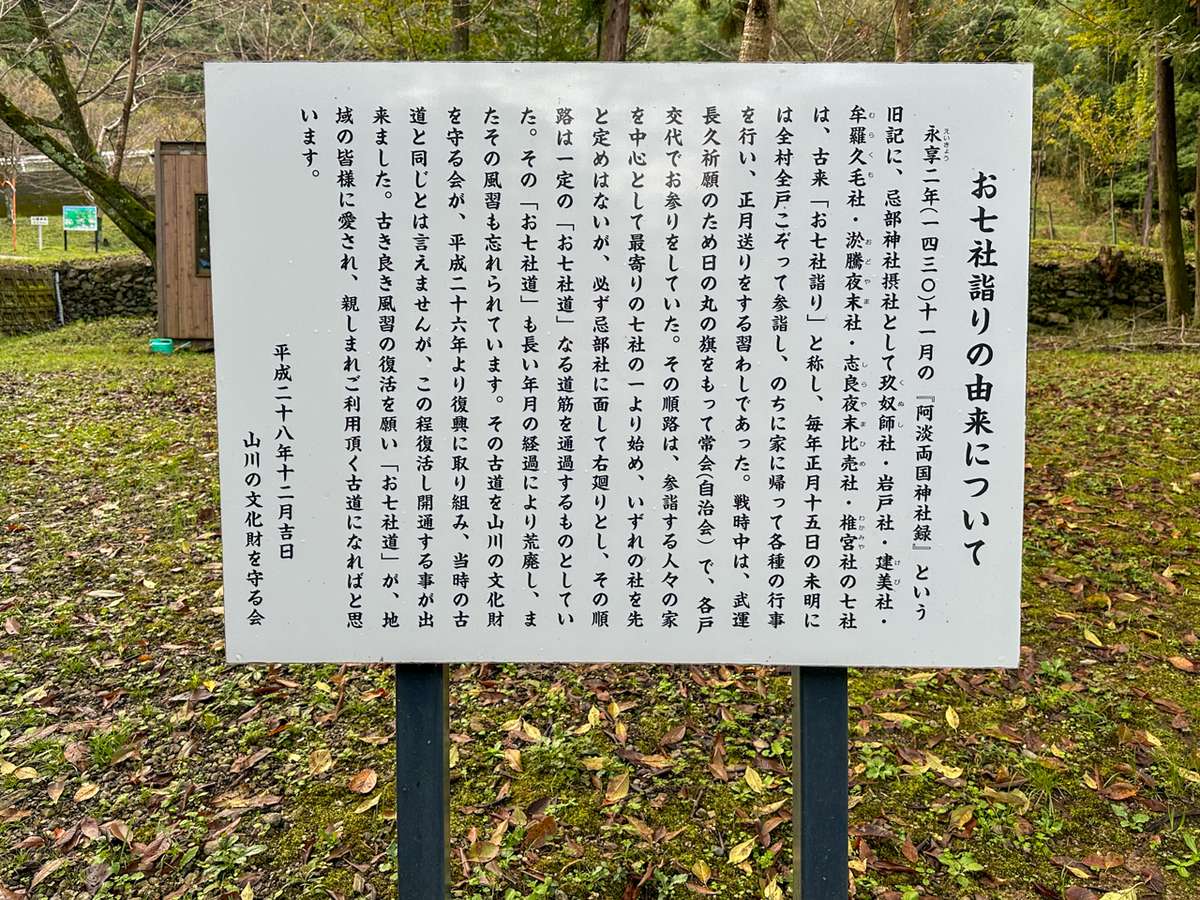 お七社詣りの由来について
永享二年(一四三〇)十一月の『阿淡両国神社録』という
旧記に、忌部神社摂社として玖奴師社・岩戸社・建美社・
牟羅久毛社・淤騰夜末社・志良夜末比売社・椎宮社の七社
は、古来「お七社詣り」と称し、毎年正月十五日の未明に
は全村全戸こぞって参詣し、のちに家に帰って各種の行事
を行い、正月送りをする習わしであった。戦時中は、武運
長久祈願のため日の丸の旗をもって常会(自治会)で、各戸
交代でお参りをしていた。その順路は、参詣する人々の家
を中心として最寄りの七社の一より始め、いずれの社を先
と定めはないが、必ず忌部社に面して右廻りとし、その順
路は一定の「お七社道」なる道筋を通過するものとしてい
た。その「お七社道」も長い年月の経過により荒廃し、ま
たその風習も忘れられています。その古道を山川の文化財
を守る会が、平成二十六年より復興に取り組み、当時の古
道と同じとは言えませんが、この程復活し開通する事が出
来ました。古き良き風習の復活を願い「お七社道」が、地
域の皆様に愛され、親しまれご利用頂く古道になればと思
います。
平成二十八年十二月吉日
山川の文化財を守る会